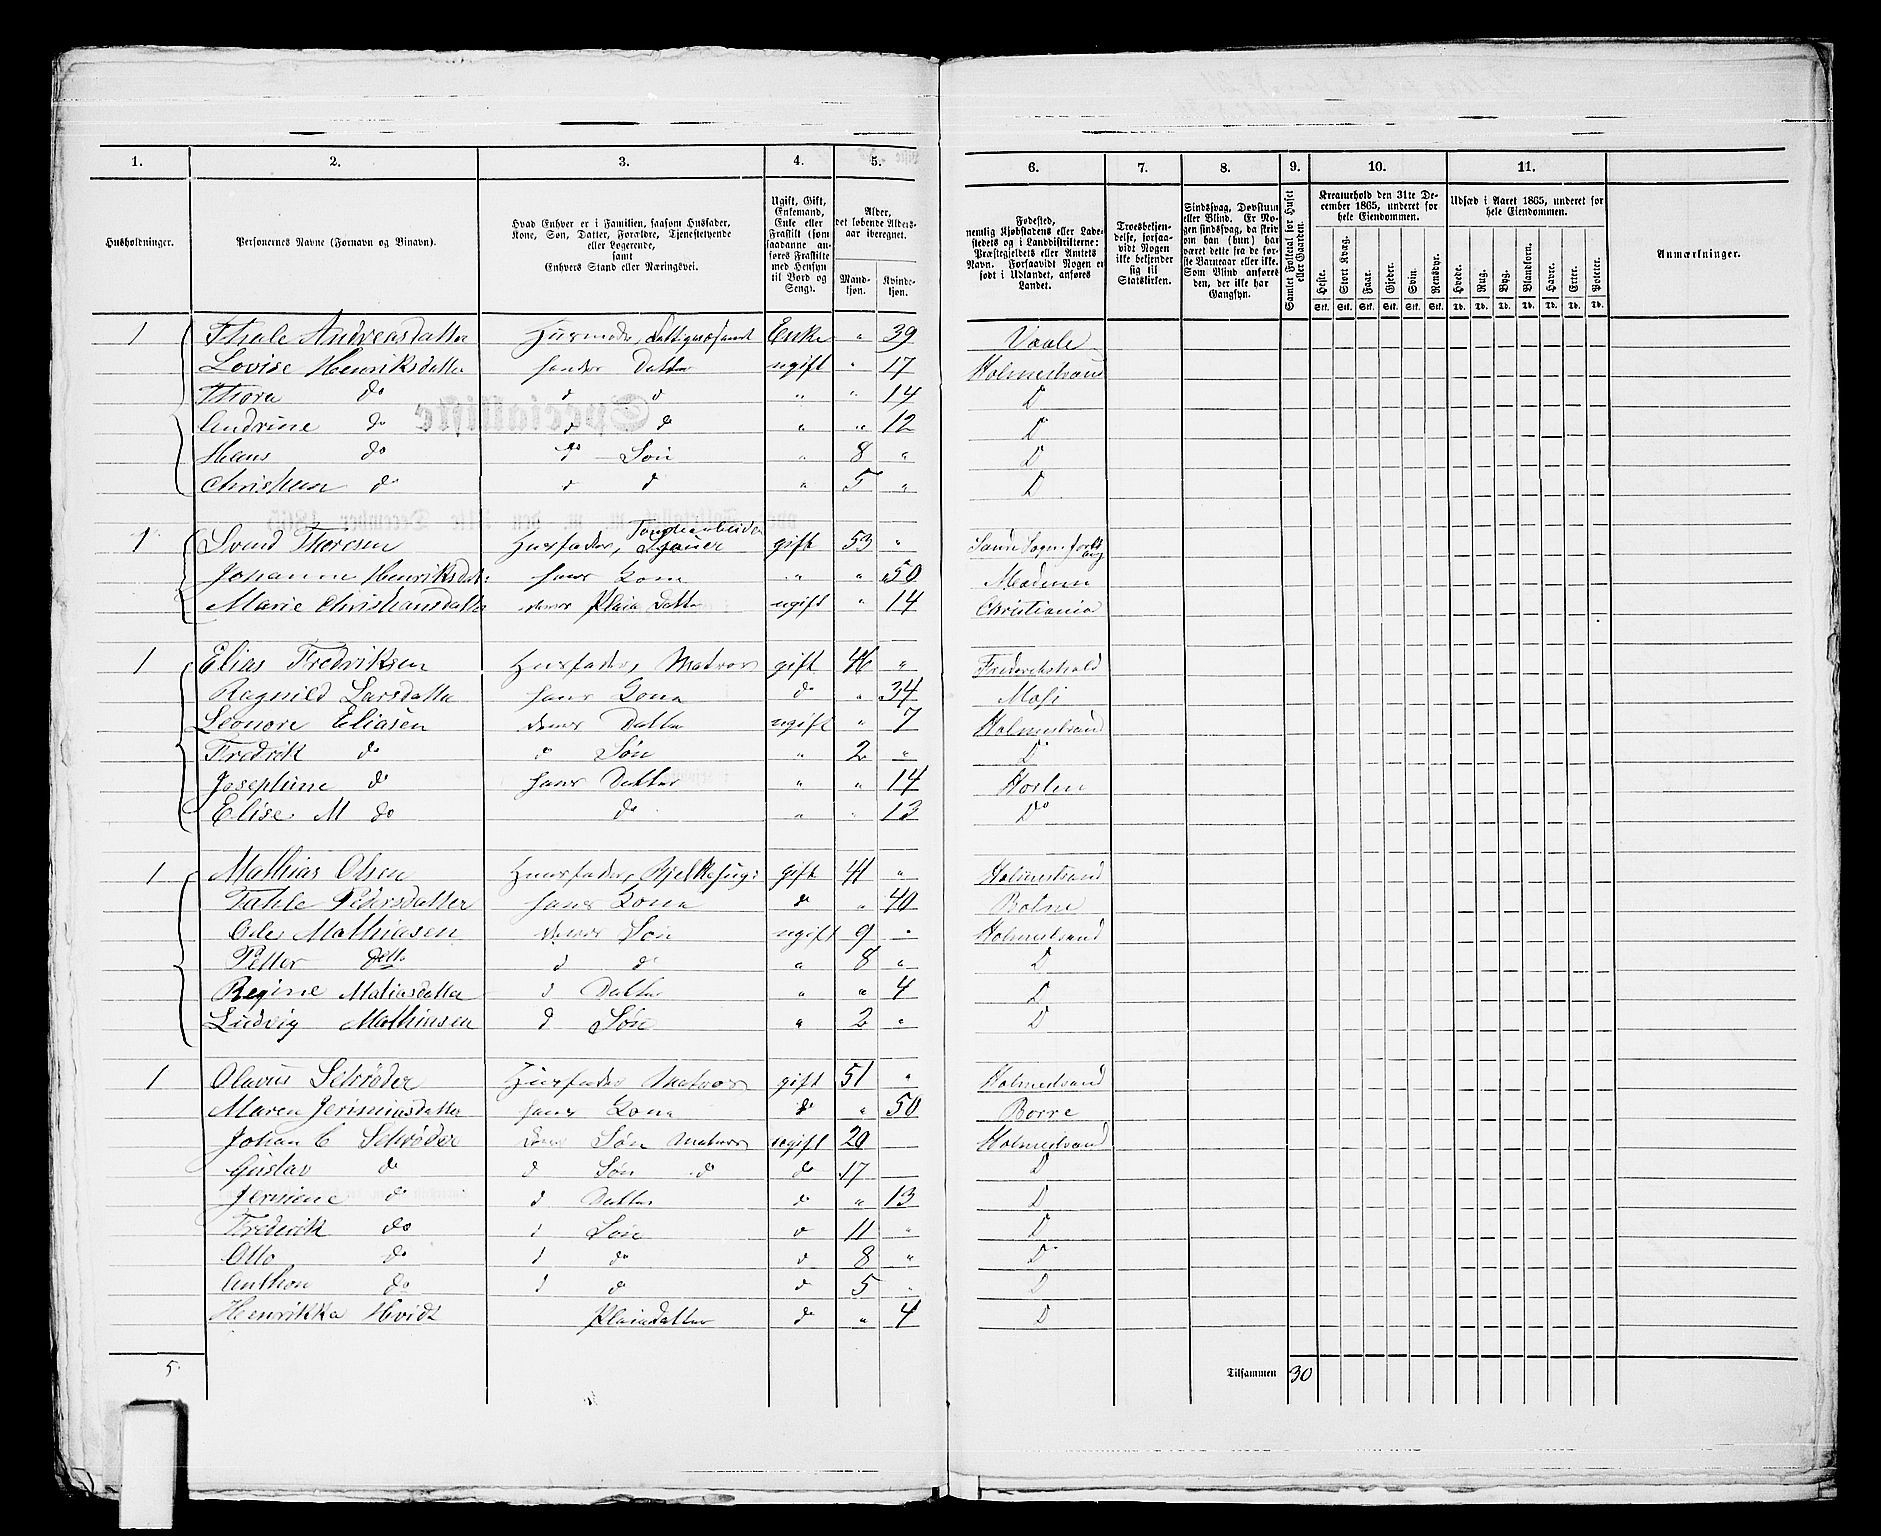 1. 2. 3. 4. 5. 6. 7. 8. 9. 10. 11.
Husholdninger.
Personernes Navne (Fornavn og Binavn).
Hvad Enhver er i Familien, saasom Husfader,
Kone, Søn, Datter, Forældre, Tjenestetyende
eller Logerende,
samt
Enhvers Stand eller Næringsvei.
Ugift, Gift,
Enkemand,
Enke eller
Fraskilt (som
saadanne an-
føres Fraskilte
med Hensyn
til Bord og
Seng).
Alder,
det løbende Alders-
aar iberegnet.
Mand-
kjøn.
Kvinde-
kjøn.
Fødested,
nemlig Kjøbstadens eller Lade-
stedets og i Landdistrikterne:
Præstegjeldets eller Amtets
Navn. Forsaavidt Nogen er
født i Udlandet, anføres
Landet.
Troesbekjen-
delse, forsaa-
vidt Nogen
ikke bekjender
sig til
Statskirken.
Sindssvag, Døvstum
eller Blind. Er No-
gen sindssvag, da skri-
ves om han (hun) har
været dette fra de før-
ste Barneaar eller ikke.
Som Blind anføres
den, der ikke har
Gangsyn.
Samlet Folketal for Huset
eller Gaarden.
Kreaturhold den 31te De-
cember 1865, underet for
hele Eiendommen.
Heste. Stort Kvæg. Faar. Gjeder. Svin. Rensdyr.
Stk. Stk. Stk. Stk. Stk. Stk.
Udsæd i Aaret 1865, underet for
hele Eiendommen.
Hvede. Rug. Byg. Blandkorn. Havre. Erter. Poteter.
Td. Td. Td. Td. Td. Td. Td.
Anmærkninger.
1 Thale Andreasdatter Husmoder, Fattigunderstøttet Enke " 39 Vaale
Lovise Henriksdatter hendes Datter ugift " 17 Holmestrand
Thora do d d " " 14 D
Andrine do d d " " 12 D
Hans do do Søn " 8 " D
Christian do d d " 5 " D
1 Svend Thoresen Husfader, gift 53 " Sande
Johanne Henriksdatter hans Kone " " 50 Modum
Marie Christiansdatter deres Pleie Datter ugift " 14 Christiania
1 Elias Fredriksen Husfader, Matros gift 46 " Frederikshald
Ragnild Larsdatter hans Kone do " 34 Moss
Leonore Eliasen deres Datter ugift " 7 Holmestrand
Fredrik do " Søn " 2 " D
Josephine do hans Datter " " 14 Horten
Elise M do do " " 13 Do
1 Mathias Olsen Husfader, gift 41 " Holmestrand
Tahle Pedersdatter hans Kone do " 40 Botne
Ole Mathiasen deres Søn ugift 9 " Holmestrand
Petter detto d do " 8 " D
Regine Matiasdatter d Datter " " 4 D
Ludvig Mathiasen d Søn " 2 " D
1 Olavus Schrøder Husfader Matros gift 51 " Holmestrand
Maren Jerimiasdatter hans Kone do " 50 Borre
Johan C Schrøder deres Søn Matros ugift 20 Holmestrand
Gustav do d Søn do do 17 D
Jermine do d Datter do " 13 D
Frederik do d Søn do 11 " D
Otto do d do d 8 " D
Anthon do d do d 5 " D
Henrikka Hvidt Pleiedatter do " 4 D
5 Tilsammen 30